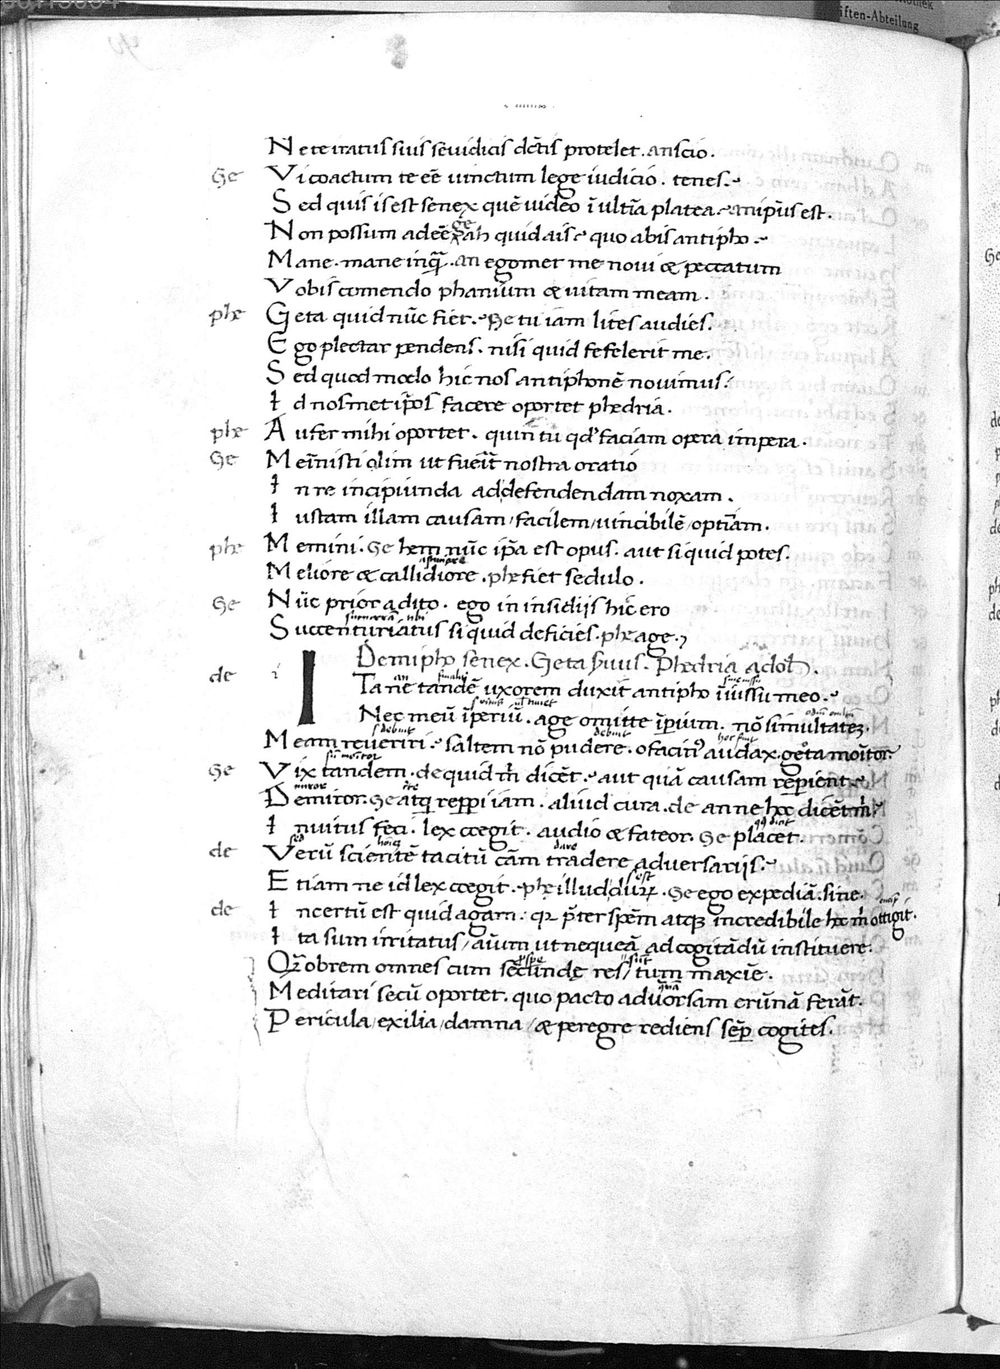 Ne te iratus suis seuidicis dc̄tis protelet. an scio.
Ge Vi coactum te eē uinctum lege iudicio. tenes.
Sed quis is est senex quē uideo ī ultīa platea. ip̄us est.
Non possum adeē. ge ah quid ais? quo abis antipho.
Mane. mane inq̄. an egomet me noui & peccatum
Vobis comendo phanium & uitam meam.
phe Geta quid nūc fiet. Ge tu iam lites audies.
Ego plectar pendens. nisi quid fefelerit me.
Sed quod modo hic nos antiphonē nouimus.
Id nosmet ip̄os facere oportet phedria.
phe Aufer mihi oportet. quin tu qd' faciam opera impera.
Ge Meīnisti olim ut fuerīt nostra oratio
In re incipiunda ad defendendam noxam.
Iustam illam causam / facilem / uincibilē / optīam.
phe Memini. Ge hem nūc ip̄a est opus. aut si quid potes.
Meliore & callidiore. phe fiet sedulo.
Ge Nūc prior adito. ego in insidijs hic ero
Succenturiatus si quid deficies. phe age.
Demipho senex. Geta s̄uus. Phedria adol.
de i ITa nē tandē uxorem duxit antipho īiussu meo.
Nec meū īperiū. age omitte īpium. nō simultatez.
Meam reueriri. saltem nō pudere. o facin' audax. geta monitor.
Ge Vix tandem. de quid m̄ dicēt. aut quā causam reperient.
Demiror. Ge atq reperi iam. aliud cura. de an ne hoc dicēt m̄
Inuitus feci. lex coegit. audio & fateor. Ge placet.
de Verū scientē tacitū cām tradere aduersariis.
Etiam ne id lex coegit. phe illud durū. Ge ego expediā. sine.
de Incertū est quid agam. qr p̄ter spēm atq incredibile hoc m̄ ottigit.
Ita sum irritatus / aīum ut nequeā ad cogitādū instituere.
Qōbrem omnes cum secūnde res / tum maxīe.
Meditari secū oportet. quo pacto aduorsam erūnā ferāt.
Pericula / exilia / damna / & peregre rediens sep̄ cogites.